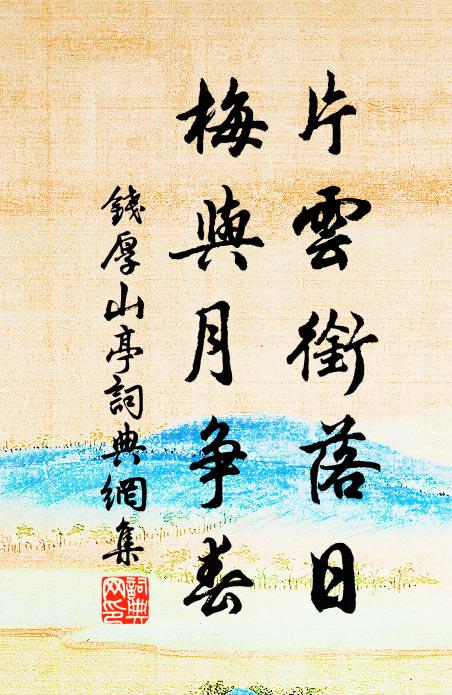 片雲銜落日
梅與月争春
錢厚山亭詞典網集
詞典